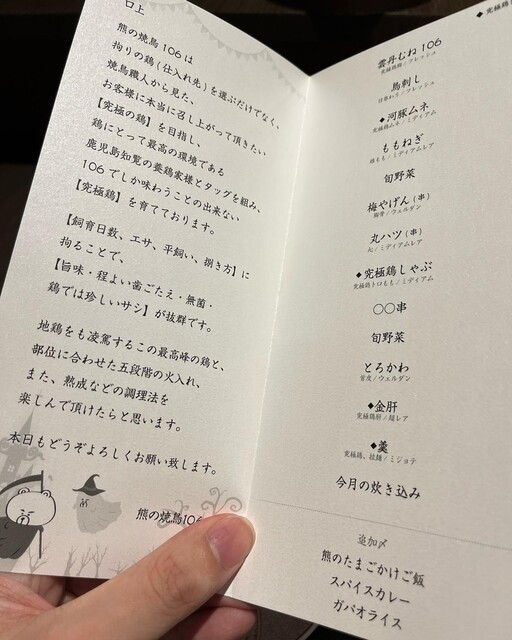 口上
熊の焼鳥106は
拘りの鶏(仕入れ先)を選ぶだけでなく、
焼鳥職人から見た、
お客様に本当に召し上がって頂きたい
【究極の鶏】を目指し、
鶏にとって最高の環境である
鹿児島知覧の養鶏家様とタッグを組み、
106でしか味わうことの出来ない
【究極鶏】を育てております。
【飼育日数、エサ、平飼い、捌き方】に
拘ることで、
【旨味・程よい歯ごたえ・無菌・
鶏では珍しいサシ】が抜群です。
地鶏をも凌駕するこの最高峰の鶏と、
部位に合わせた五段階の火入れ、
また、熟成などの調理法を
楽しんで頂けたらと思います。
本日もどうぞよろしくお願い致します。
熊の焼鳥106
◆究極鶏
雲丹むね106
究極鶏胸/フレッシュ
鳥刺し
日替わり/フレッシュ
◆河豚ムネ
究極鶏ムネ/ミディアム
ももねぎ
鶏もも/ミディアムレア
旬野菜
梅やげん(串)
胸骨/ウェルダン
丸ハツ(串)
心/ミディアムレア
◆究極鶏しゃぶ
究極鶏トロもも/ミディアム
〇〇串
旬野菜
とろかわ
首皮/ウェルダン
◆金肝
究極鶏肝/超レア
◆羹
究極鶏、拉麺/ミジョテ
今月の炊き込み
追加〆
熊のたまごかけご飯
スパイスカレー
ガパオライス